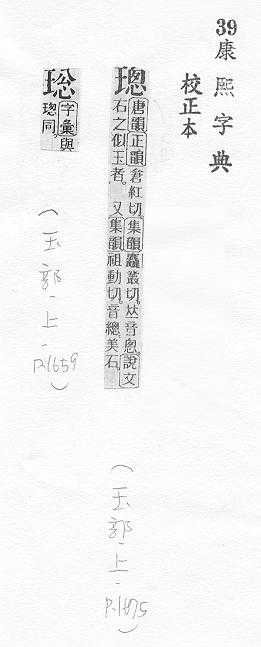 39康熙字典
校正本
璁
唐韻正韻倉紅切。集韻麤叢切。𠀤音悤說文
石之似玉者。又集韻祖動切。音總美石
(玉部-上-P.1675)
字彙與
璁同
(玉部-上-P.1659)